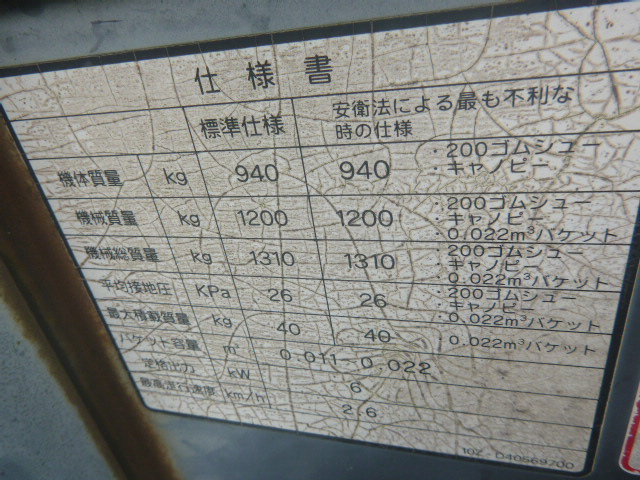 仕様書
標準仕様 安衛法による最も不利な
時の仕様
機体質量 kg 940 940 ・200ゴムシュー
・キャノピー
機械質量 kg 1200 1200 ・200ゴムシュー
・キャノピー
・0.022m³バケット
機械総質量 kg 1310 1310 ・200ゴムシュー
・キャノピー
・0.022m³バケット
平均接地圧 KPa 26 26 ・200ゴムシュー
・キャノピー
・0.022m³バケット
最大積載質量 kg 40 40 ・0.022m³バケット
バケット容量 m³ 0.011~0.022
定格出力 kW 6
最高走行速度 km/h 2.6
10Z-D40569700